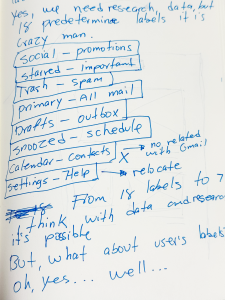 yes, we need research, data, but
18 predetermine labels it is
crazy man.
social - promotions
starred - important
trash - spam
primary - All mail
Drafts - outbox
snoozed - schedule
calendar - contacts X → no related
with Gmail
settings - Help → relocate
From 18 labels to 7
I think, with data and research
it's possible
But, what about user's labels
oh, yes... well...